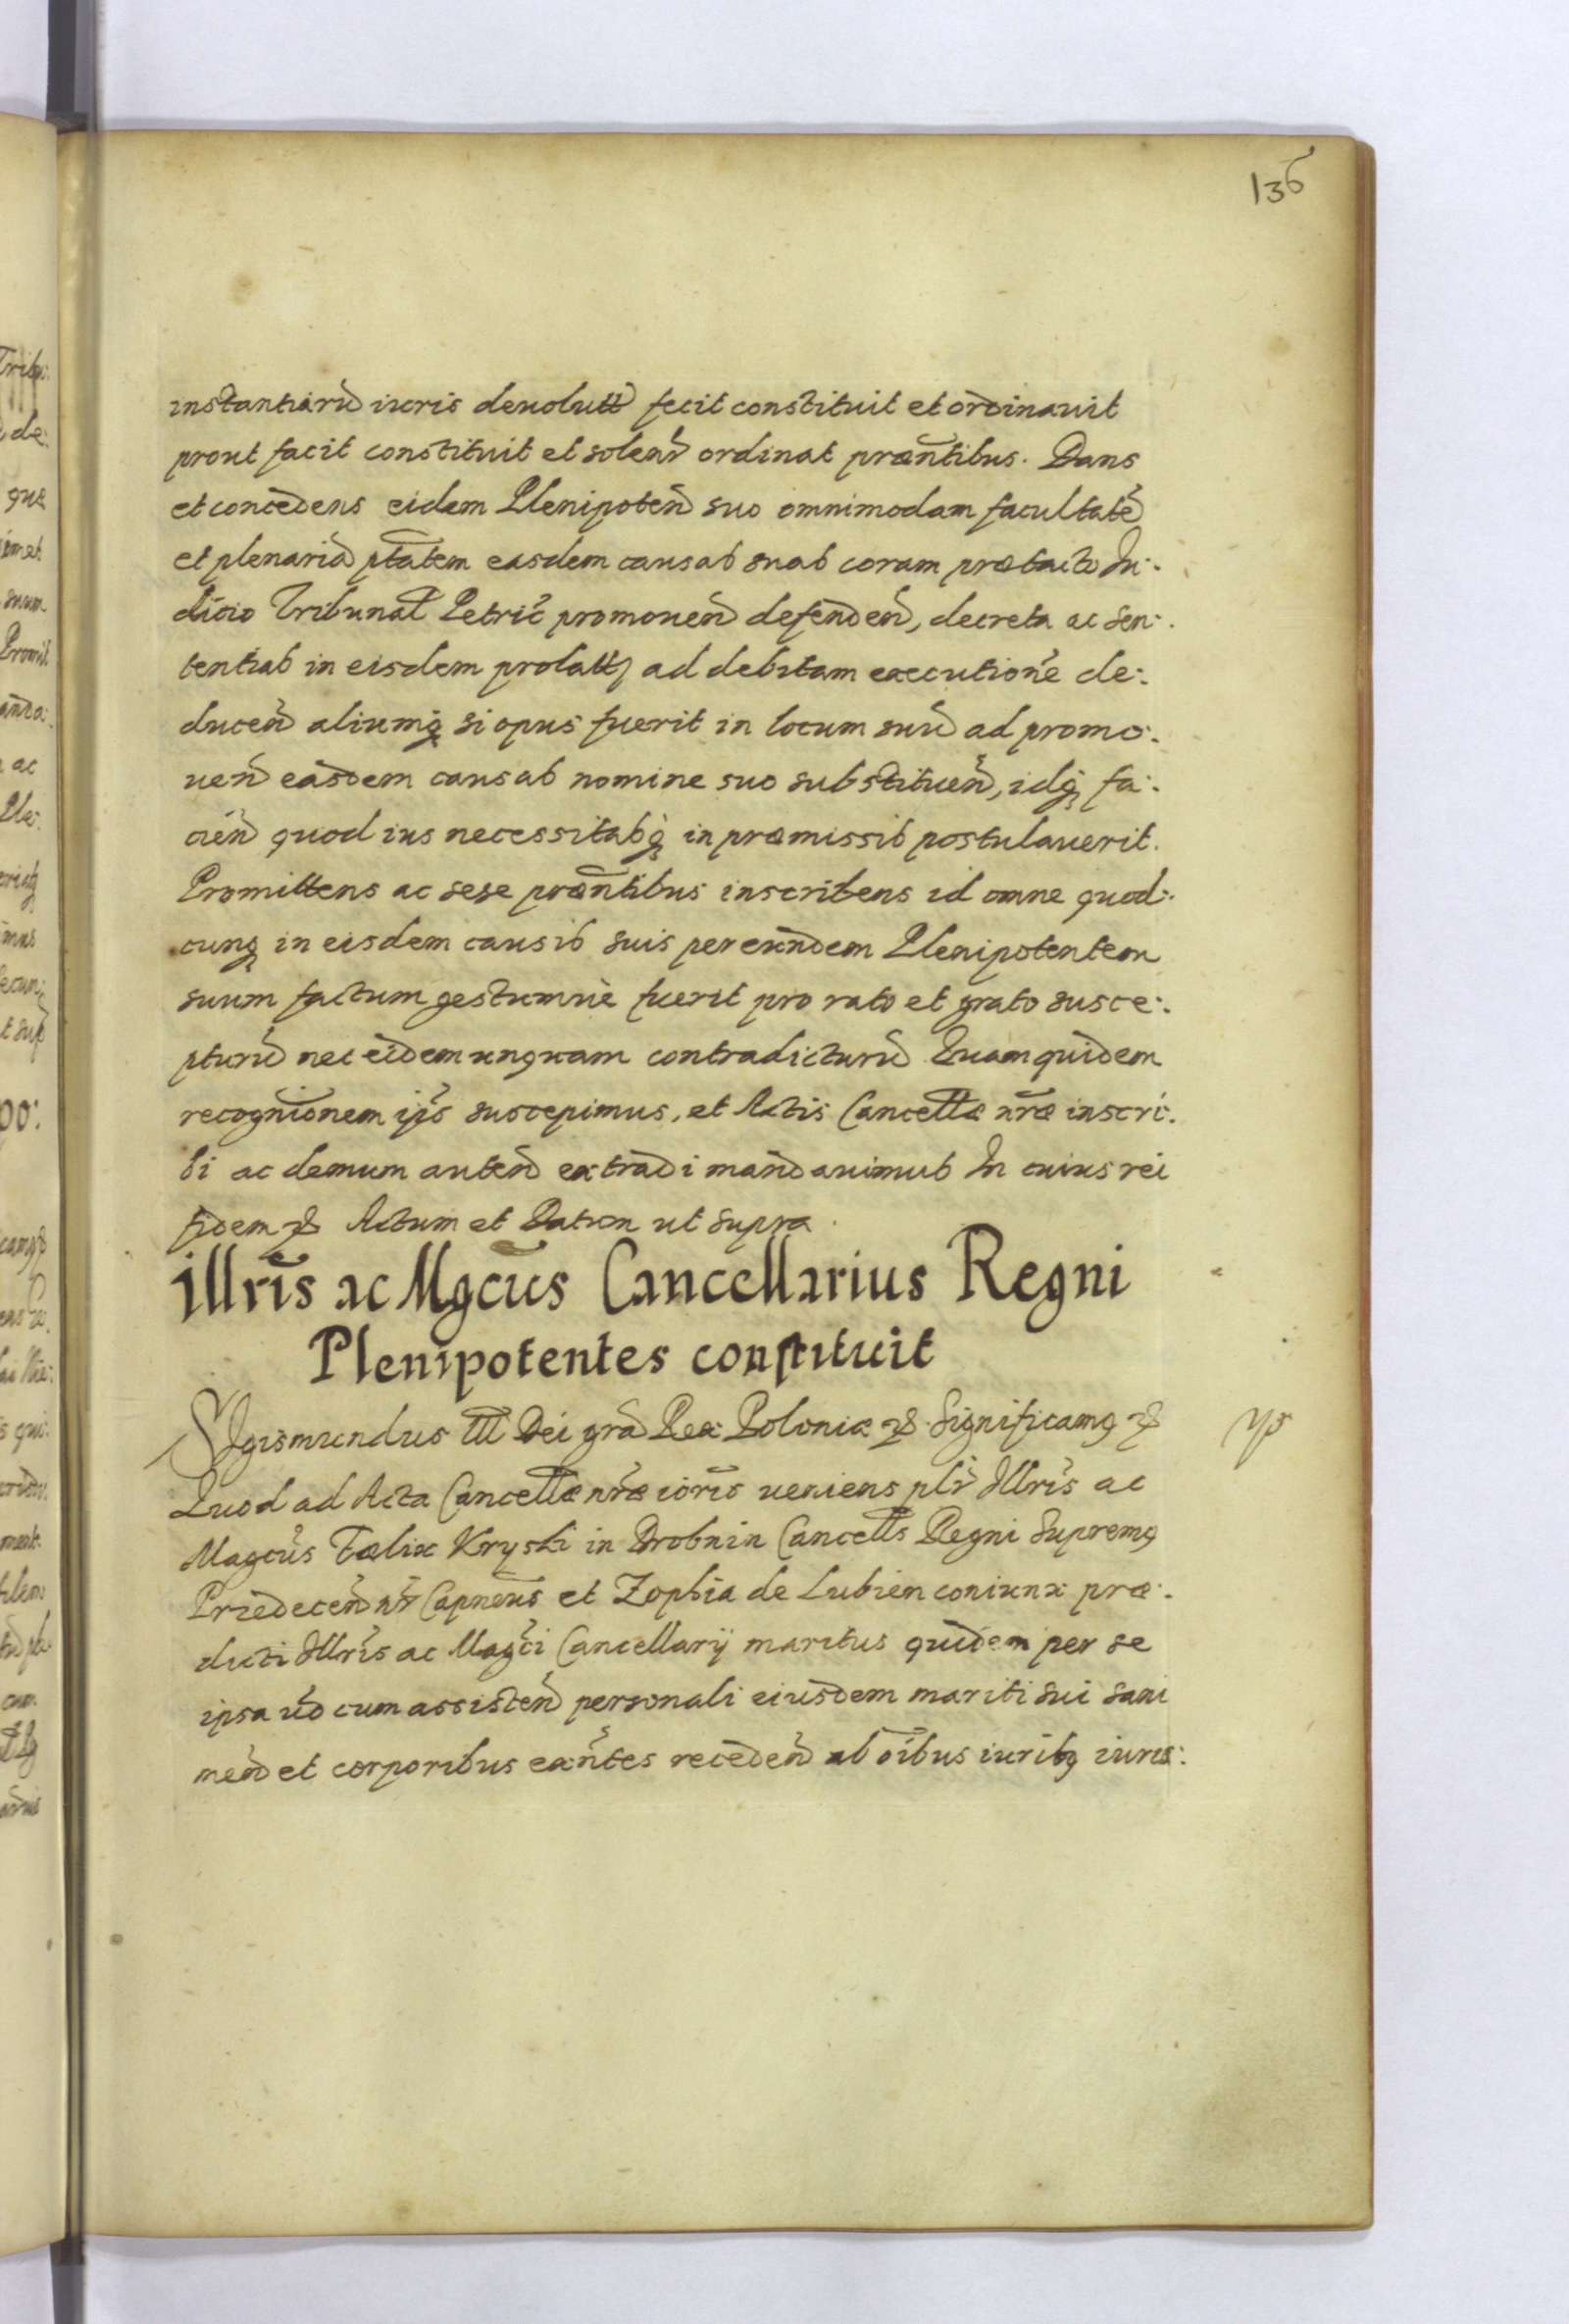 136
instantiarū iuris deuolutt fecit constituit et ordinauit
prout facit constituit et solenr ordinat præntibus. Dans
et concedens eidem Plenipoten suo omnimodam facultatē
et plenariā ptatem easdem causas suas coram prætacto Iu:
dicio Tribunal Petric promouen defenden, decreta ac sen:
tentias in eisdem prolatt ad debitam executionē de:
ducen aliumq si opus fuerit in locum suū ad promo:
uen easdem causas nomine suo substituen, idq fa:
cien quod ius necessitasq in præmissis postulauerit.
Promittens ac sese præntibus inscribens id omne quod:
cunq in eisdem causis suis per eundem Plenipotentem
suum factum gestumue fuerit pro rato et grato susce:
pturū nec eidem unquam contradicturū Quam quidem
recognionem ips suscepimus, et Actis Cancellæ nræ inscri:
bi ac demum auten extradi mandauimus In cuius rei
fidem etc Actum et Datum ut supra.
Illris ac Mgcus Cancellarius Regni
Plenipotentes constituit
Sigismundus III Dei gra Rex Poloniæ etc. Significamq etc
Quod ad Acta Cancellæ nræ ioris ueniens plr Illris ac
Magcus Fælix Kryski in Drobnin Cancells Regni Supremq
Priedecen nr Capneus et Zophia de Lubien coniunx præ:
dicti Illris ac Magci Cancellarij maritus quidem per se
ipsa uo cum assisten personali eiusdem mariti sui sani
men et corporibus exntes receden ab oibus iuribq iuris: